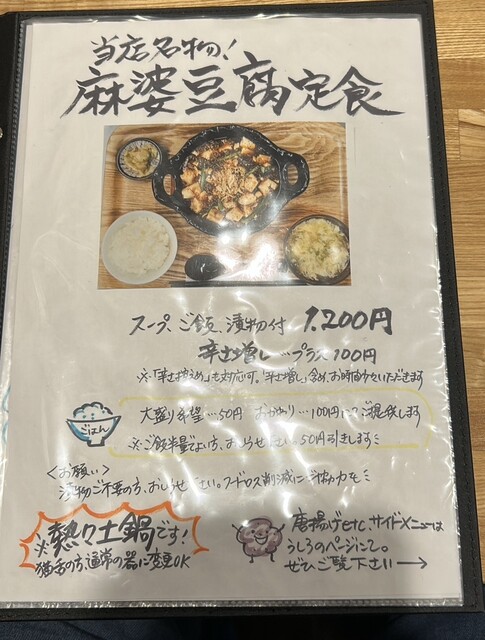 当店名物!
麻婆豆腐定食
スープ、ご飯、漬物付 1,200円
辛さ増し…プラス100円
※「辛さ控えめ」も対応可。「辛さ増し」含め、お時間少々いただきます
ごはん
大盛り希望…50円 おかわり…100円にてご提供します
※ご飯半量でよい方、おしらせ下さい。50円引きします
<お願い>
漬物ご不要の方、おしらせ下さい。フードロス削減にご協力を
※熱々土鍋です!
猫舌の方、通常の器に変更OK
唐揚げetc、サイドメニューは
うしろのページにて。
ぜひご覧下さい→